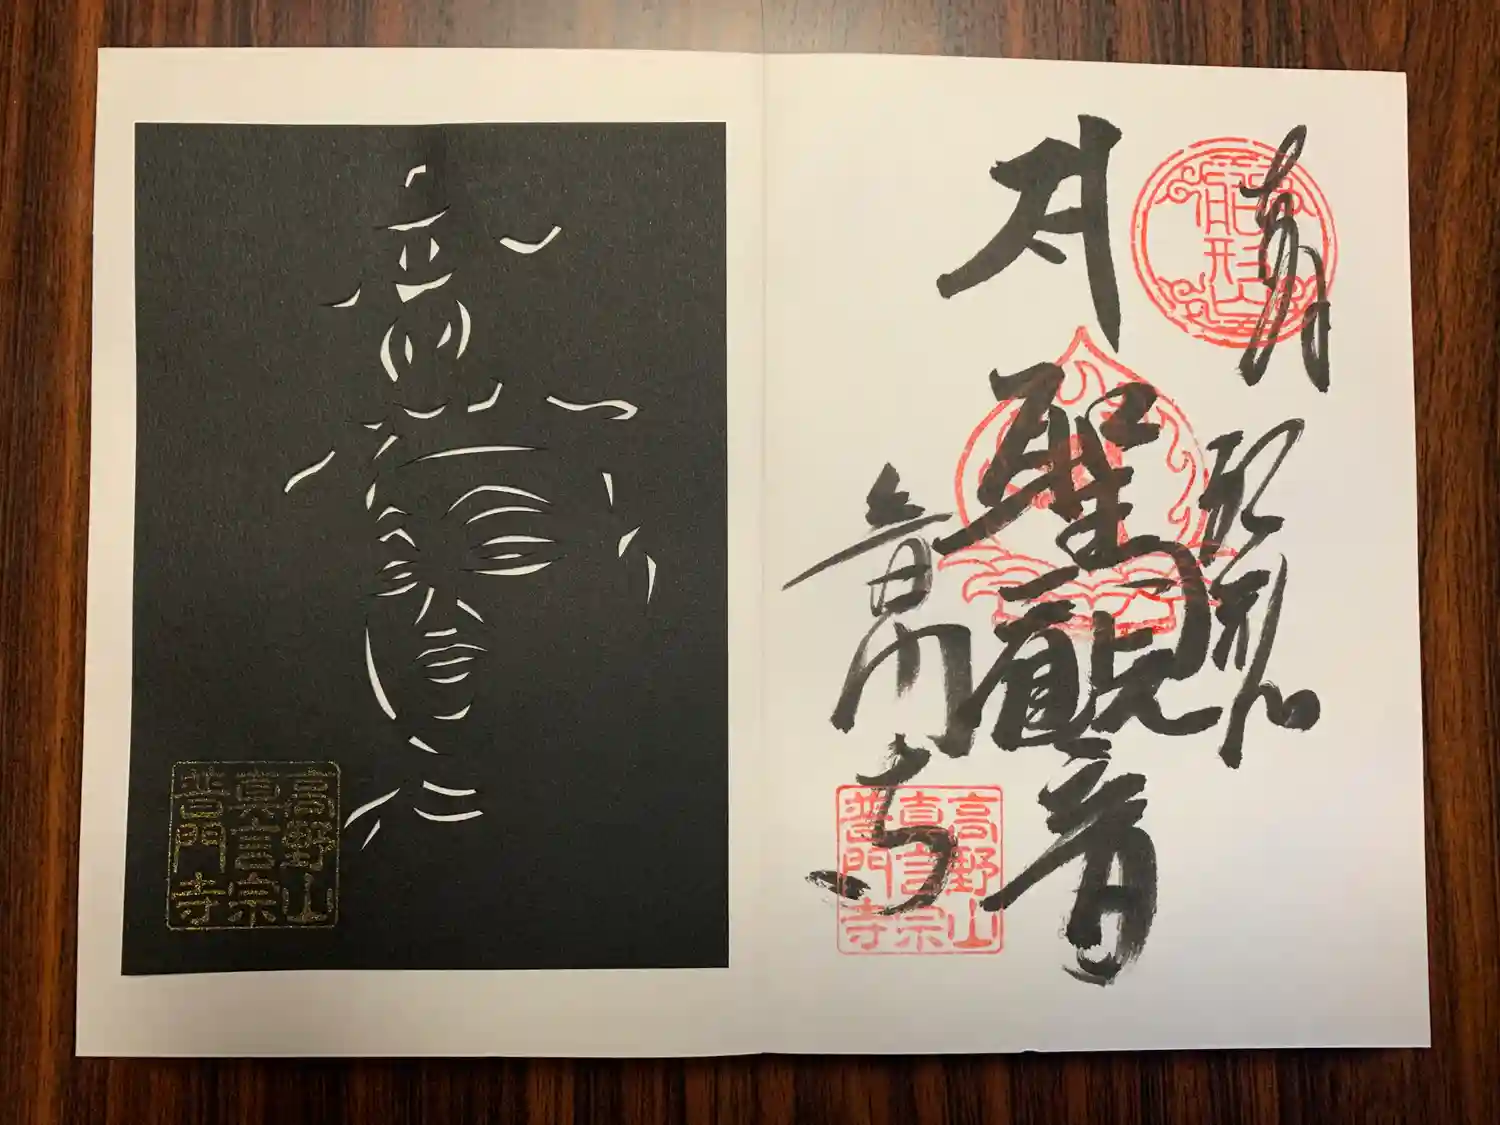 船形山
聖観音
普門寺
高野山
真言宗
普門寺
高野山
真言宗
普門寺